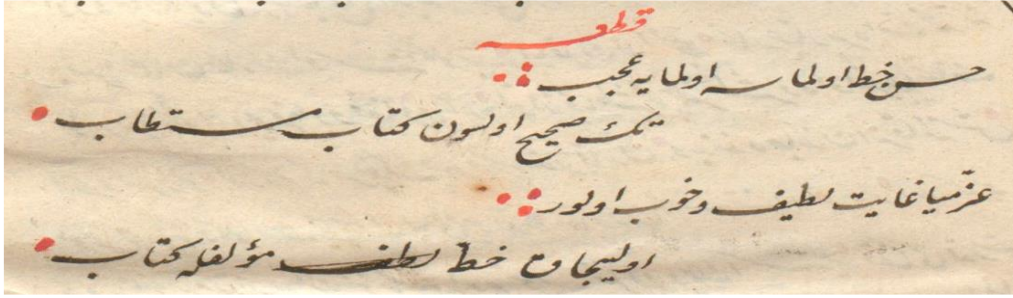 قطعه
حسن خط اولماسه اولمایه عجب
تك صحیح اولسون كتاب مستطاب
عزمیا غایت لطیف و خوب اولور
اولیجاق خط لطف مؤلفله كتاب